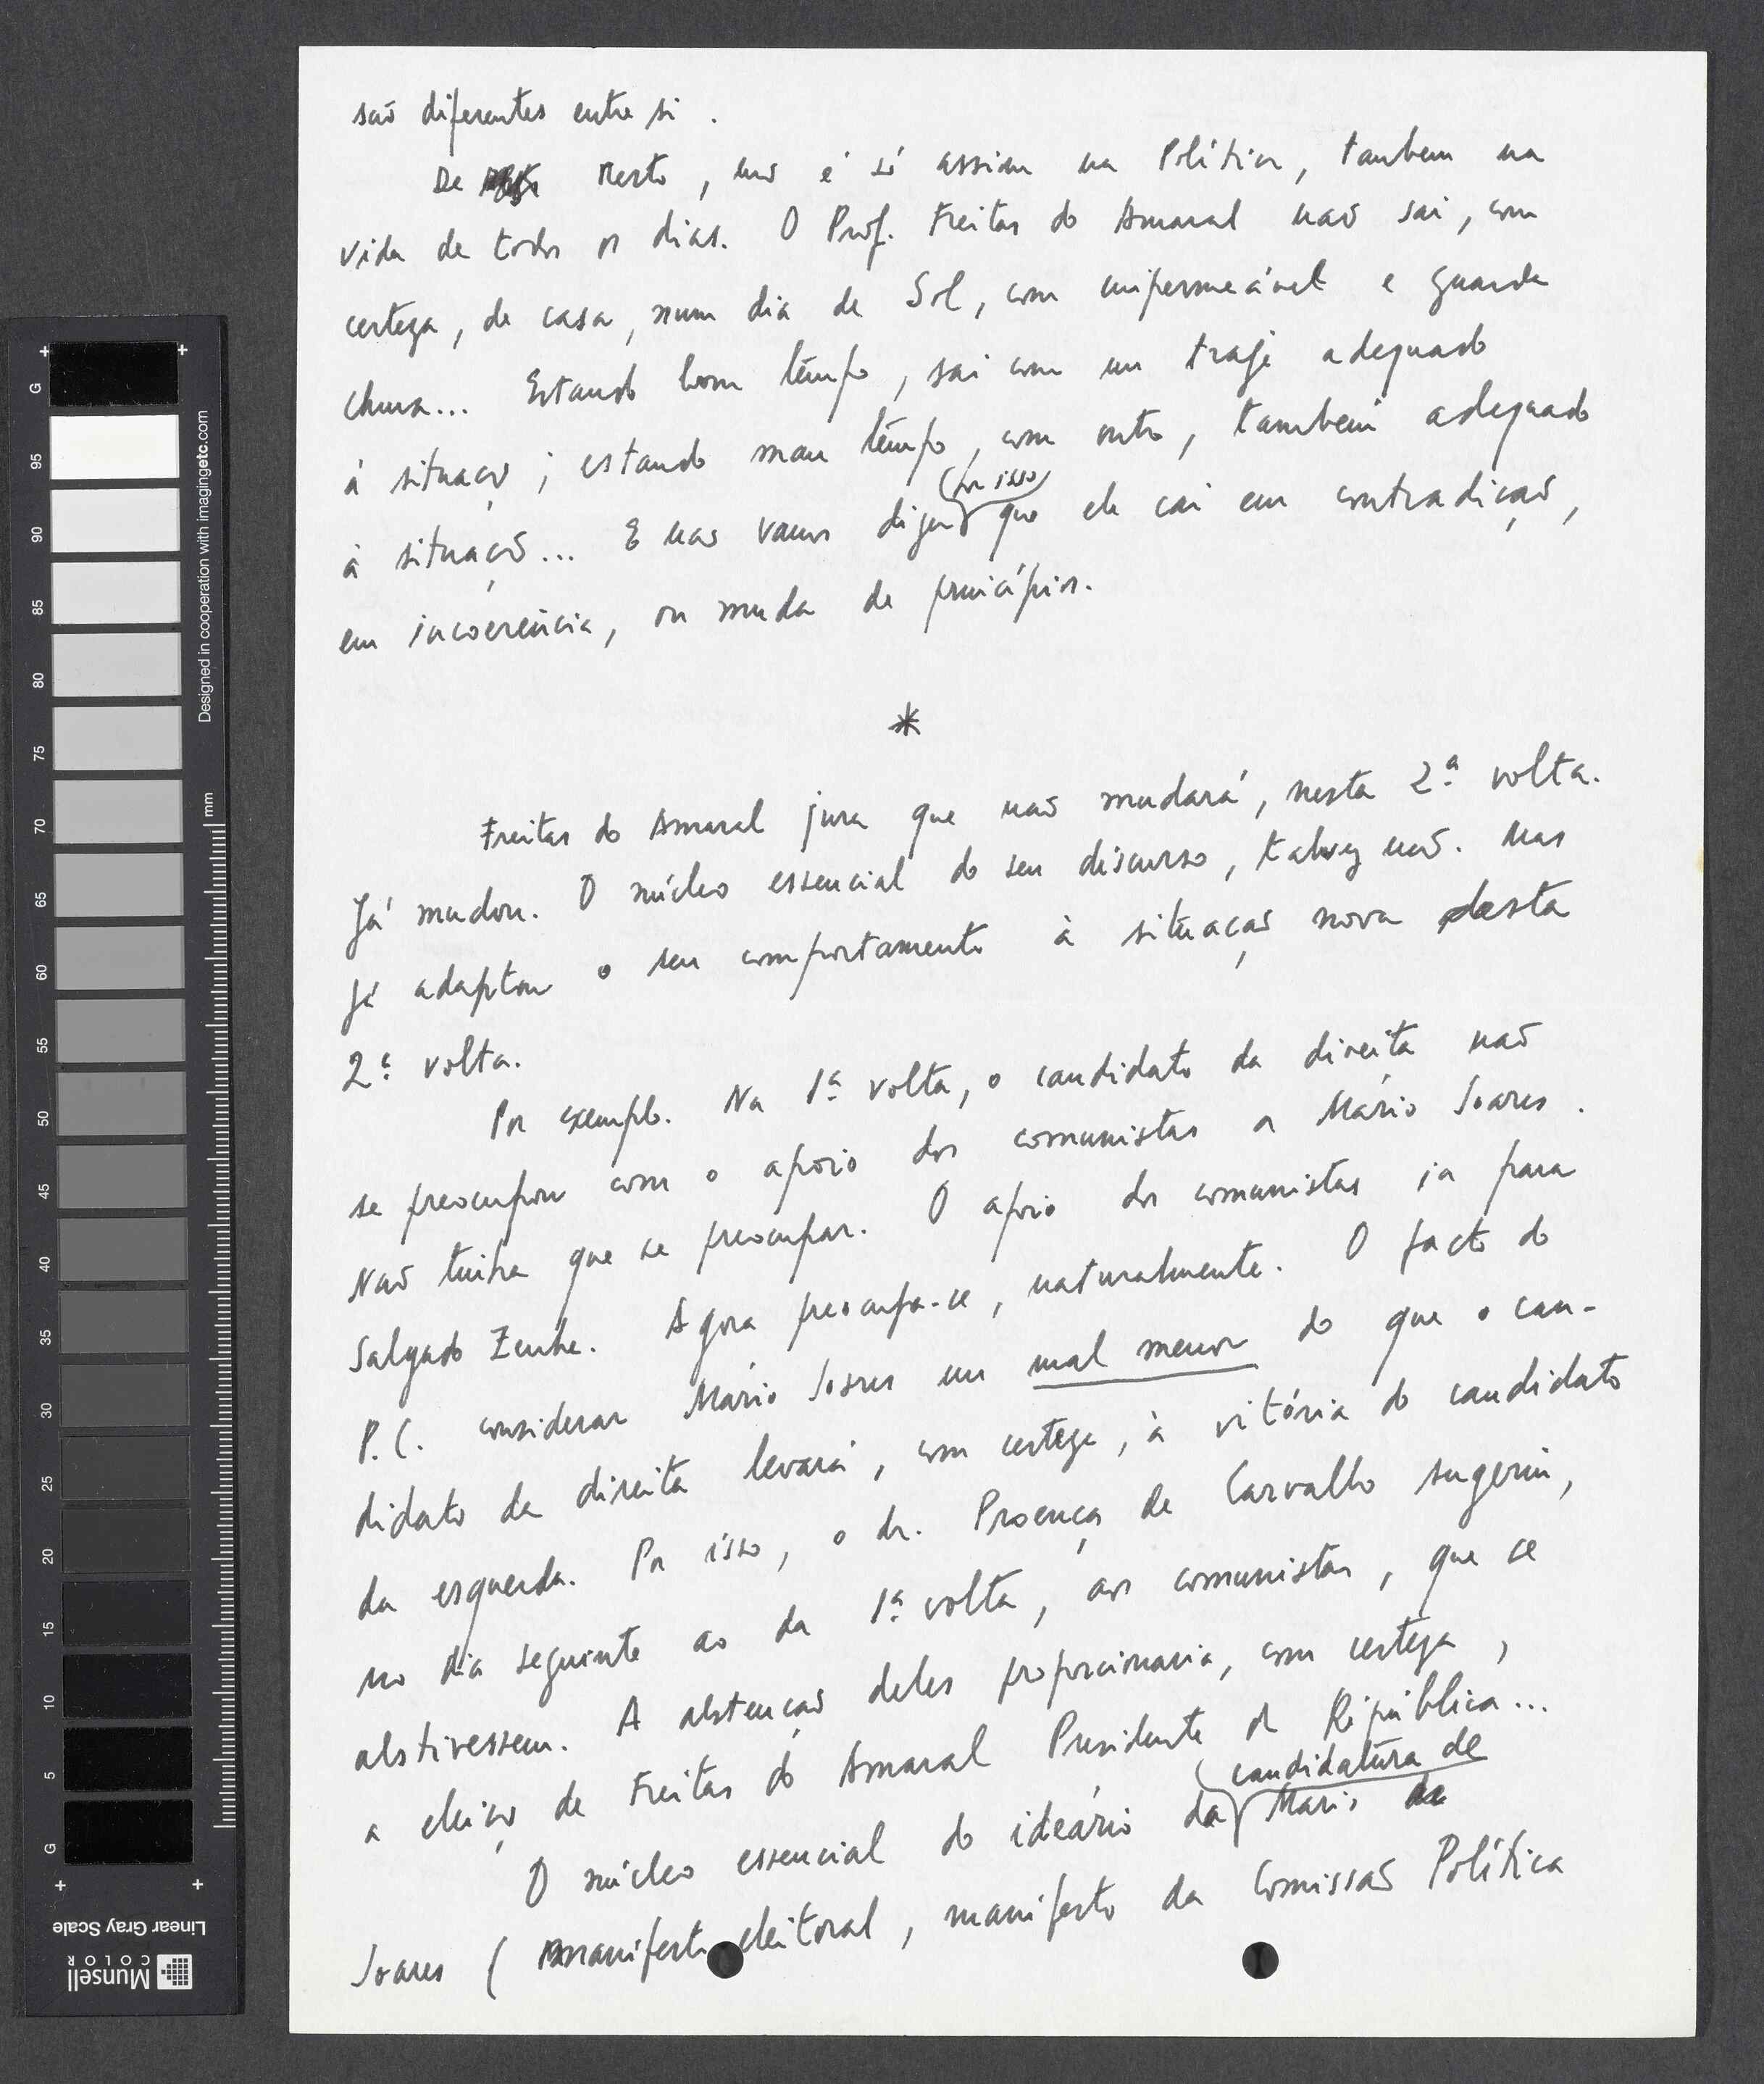 são diferentes entre si.
De Resto, não é só assim na Política, tambem na
vida de todos os dias. O Prof. Freitas do Amaral não sai, com
certeza, de casa, num dia de Sol, com impermeável e guarda
chuva... Estando bom tempo, sai com um traje adequado
à situação; estando mau tempo, com outro, também adequado
à situação... E nas vamos dizer por isso que ele cai em contradição,
em incoerência, ou muda de princípios.
*
Freitas do Amaral jura que não mudará, nesta 2ª volta.
Já mudou. O núcleo essencial do seu discurso, talvez não. Mas
Já adaptou o seu comportamento à situação nova desta
2ª volta.
Por exemplo. Na 1ª volta, o candidato da direita não
se preocupou com o apoio dos comunistas a Mário Soares.
Não tinha que se preocupar. O apoio dos comunistas ia para
Salgado Zenha. Agora preocupa-se, naturalmente. O facto do
P.C. considerar Mário Soares um mal menor do que o can-
didato da direita levará, com certeza, à vitória do candidato
da esquerda. Por isso, o dr. Proença de Carvalho sugeriu,
no dia seguinte ao da 1ª volta, aos comunistas, que se
abstivessem. A abstenção deles proporcionaria, com certeza,
a eleição de Freitas do Amaral Presidente da República...
O núcleo essencial do ideário da candidatura de Mario
Soares (manifesto eleitoral, manifesto da Comissão Política
Designed in cooperation with imagingetc.com
mm
G
95
90
85
80
75
70
65
60
55
50
45
40
35
30
25
20
15
10
5
G
Linear Gray Scale
Munsell
COLOR